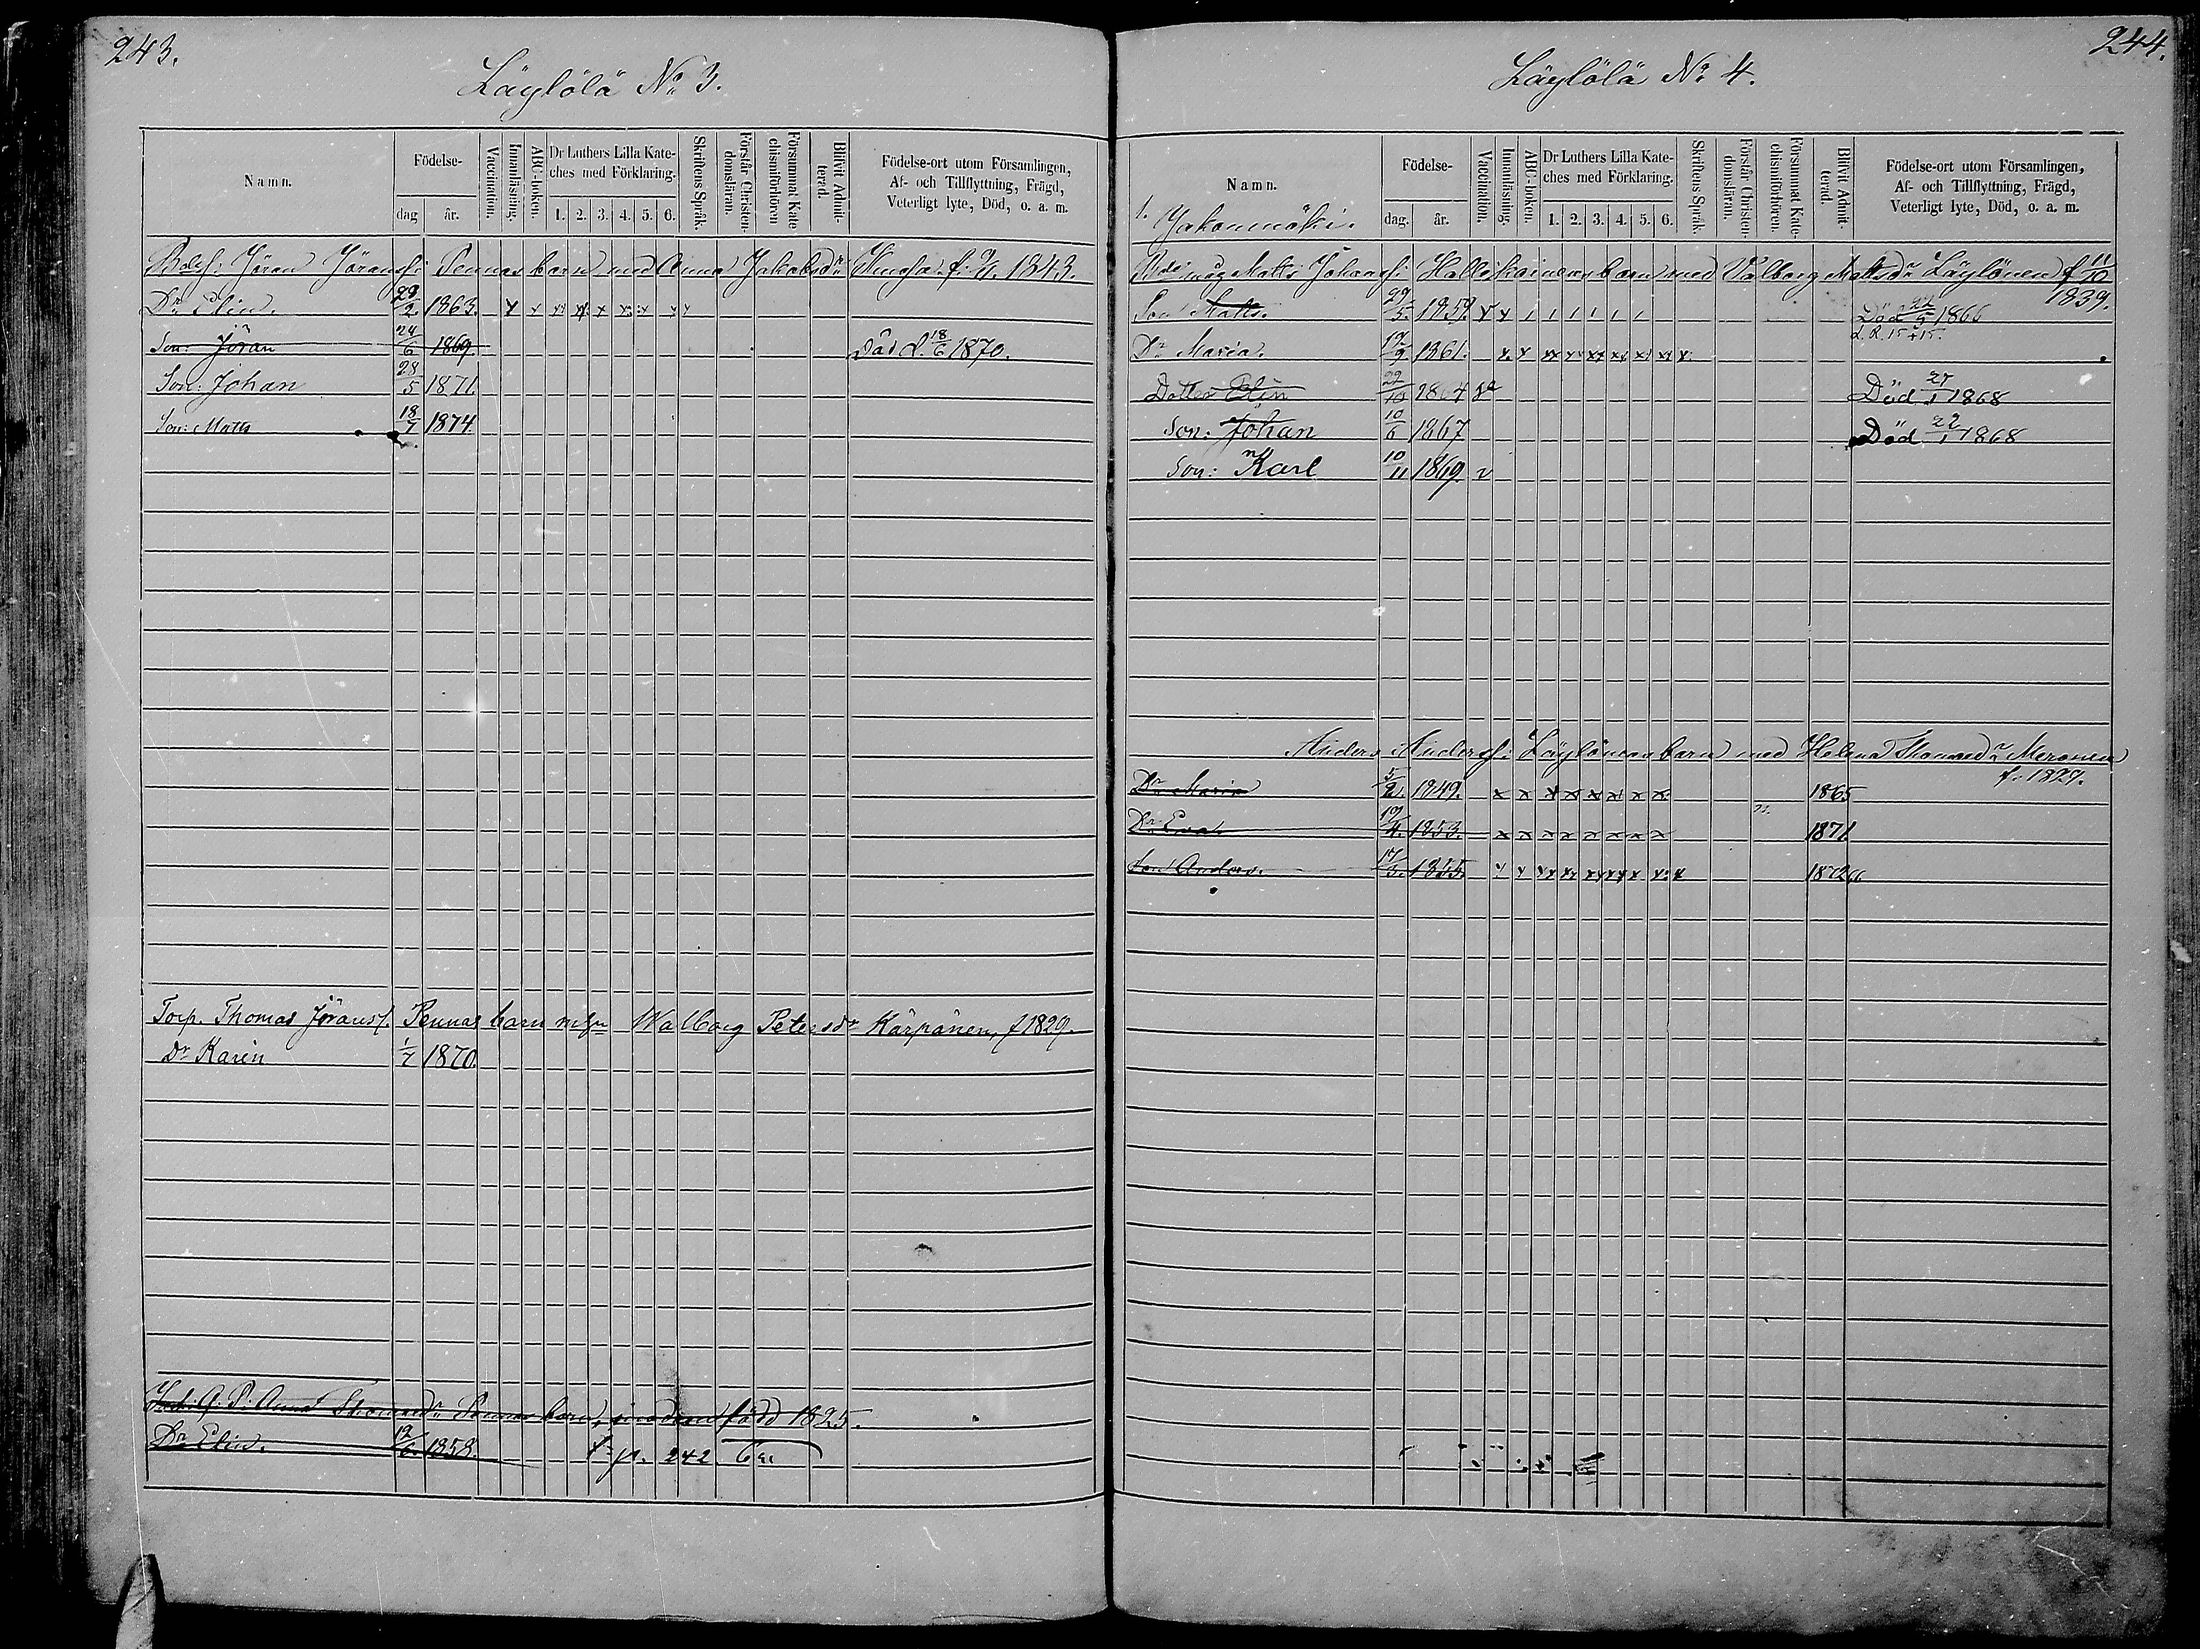 243.
Läylölä No 3.
Namn.
Födelse-
dag
år.
Vaccination.
Innanläsning.
ABC-boken.
Dr Luthers Lilla Kate-
ches med Förklaring.
1. 2. 3. 4. 5. 6.
Skriftens Språk.
Förstår Christen-
domsläran.
Försummat Kate
chismiförhören
Blifvit Admit-
terad.
Födelse-ort utom Församlingen,
Af- och Tillflyttning, Frägd,
Veterligt lyte, Död, o. a. m.
Jöran Jöranss: Pennas barn med Anna Jakobsdr f. 1843.
Dr Elin. 29/2. 1863. x x x x x x x x x
Son: Jöran 24/6 1869. Död d. 18/6 1870.
Son: Johan 28/5 1871.
Son: Matts 18/7 1874
Torp. Thomas Jöranss. Pennas barn m. hu Walborg Petersdr Kärpänen, f 1829.
Dr Karin 1/7 1870.
Anna Thomasdr Pennas barn, modren född 1825.
Dr Elin. 12/6. 1858. p. 242
244.
Läylölä No 4.
Namn.
1. Jakonmäki.
Födelse-
dag.
år.
Vaccination.
Innanläsning.
ABC-boken.
Dr Luthers Lilla Kate-
ches med Förklaring.
1. 2. 3. 4. 5. 6.
Skriftens Språk.
Förstår Christen-
domsläran.
Försummat Kate-
chismiförhören.
Blifvit Admit-
terad.
Födelse-ort utom Församlingen,
Af- och Tillflyttning, Frägd,
Veterligt lyte, Död, o. a. m.
Matts Johanss: Hallikainens barn med Valborg Mattsdr Läylönen f 11/10
1839.
Son Matts. 27/5. 1859. v x 1 1 1 1 1 1 Död 22/5 1866
Dr Maria. 12/9 1861. x x xx x xx xx x xx x
Dotter Elin 22/10 1864 Död 27/1 1868
Son: Johan 10/6 1867 Död 22/1 1868
Son: Karl 10/11 1869 v
Anders Anderss: Läylönens barn med Helena Thomasdr Meronen
f: 1827.
Dr Maria 5/2. 1849. x x x x x x x x 1865
Dr Eva. 19/4. 1853. x x x x x x x x 1871
Son Anders. 17/3. 1855. x x xx xx xx xx x x x 1872